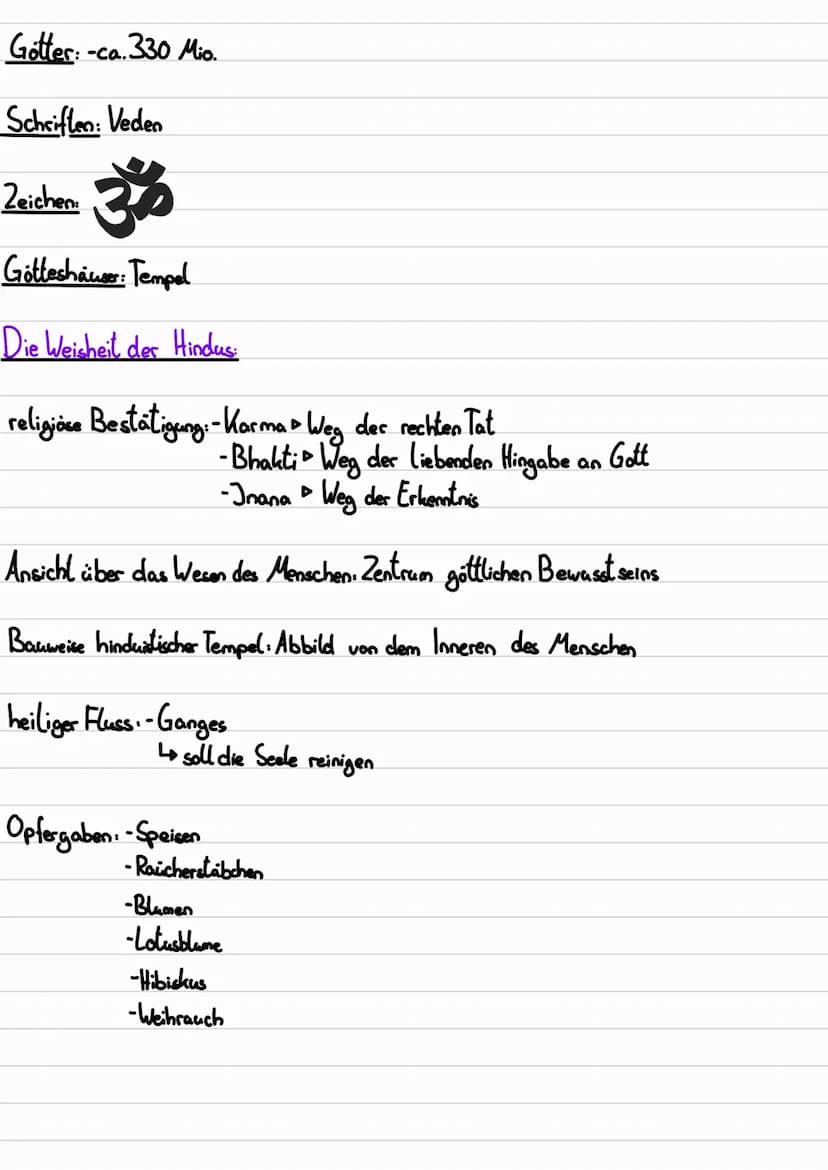 Götter: -ca. 330 Mio.
Schriften: Veden
Zeichen: ॐ
Götteshäuser: Tempel
Die Weisheit der Hindus:
religiöse Bestätigung: -Karma ▹ Weg der rechten Tat
-Bhakti ▹ Weg der liebenden Hingabe an Gott
-Jnana ▹ Weg der Erkenntnis
Ansicht über das Wesen des Menschen: Zentrum göttlichen Bewusstseins
Bauweise hinduistischer Tempel: Abbild von dem Inneren des Menschen
heiliger Fluss: -Ganges
↳ soll die Seele reinigen
Opfergaben: -Speisen
-Räucherstäbchen
-Blumen
-Lotusblume
-Hibiskus
-Weihrauch